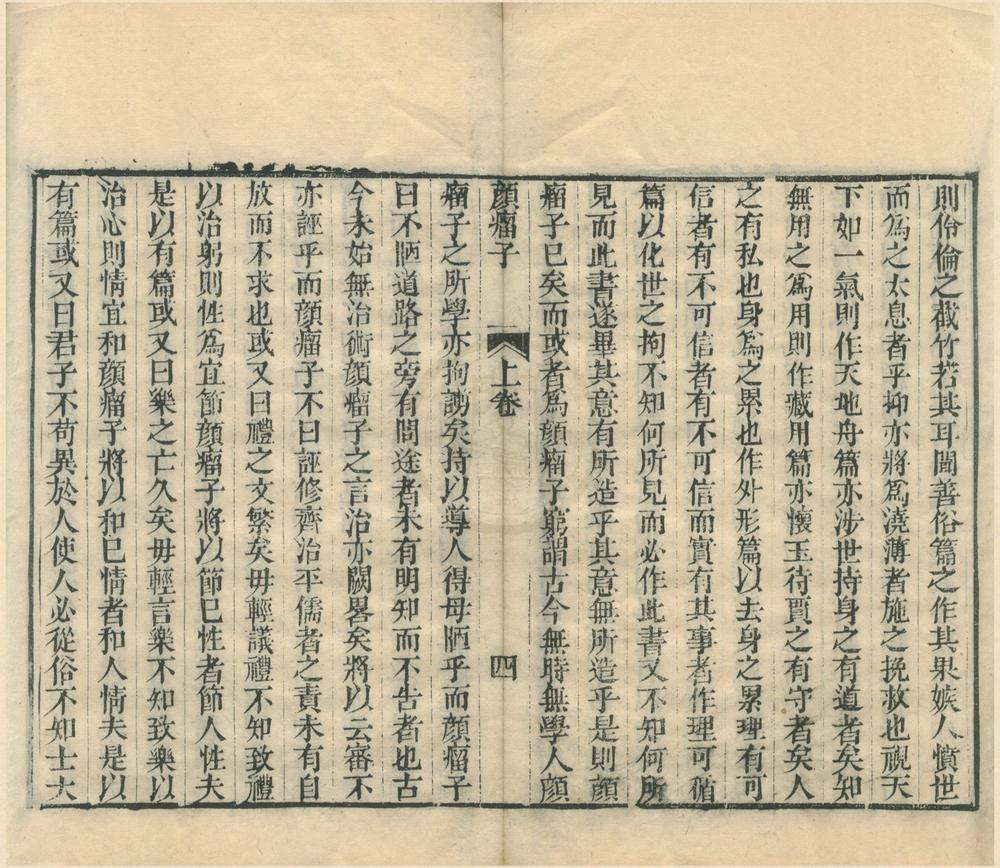 則俗倫之截竹若其耳聞善俗篇之作其果嫉人憤世
而爲之太息者乎抑亦將爲澆薄者施之挽救也視天
下如一氣則作天地舟篇亦涉世持身之有道者矣知
無用之爲用則作藏用篇亦懷玉待賈之有守者矣人
之有私也身爲之累也作外形篇以去身之累理有可
信者有不可信者有不可信而實有其事者作理可循
篇以化世之拘不知何所見而必作此書又不知何所
見而此書遂畢其意有所造乎其意無所造乎是則顔
瘤子已矣而或者爲顔瘤子窮謂古今無時無學人顔
顔瘤子 上卷 四
瘤子之所學亦拘謭矣持以導人得毋陋乎而顔瘤子
曰不陋道路之旁有問途者未有明知而不告者也古
今未始無治術顔瘤子之言治亦闕畧矣將以云審不
亦誣乎而顔瘤子不曰誣修齊治平儒者之責未有自
放而不求也或又曰禮之文繁矣毋輕議禮不知致禮
以治躬則性爲宜節顔瘤子將以節已性者節人性夫
是以有篇或又曰樂之亡久矣毋輕言樂不知致樂以
治心則情宜和顔瘤子將以和已情者和人情夫是以
有篇或又曰君子不苟異於人使人必從俗不知士大